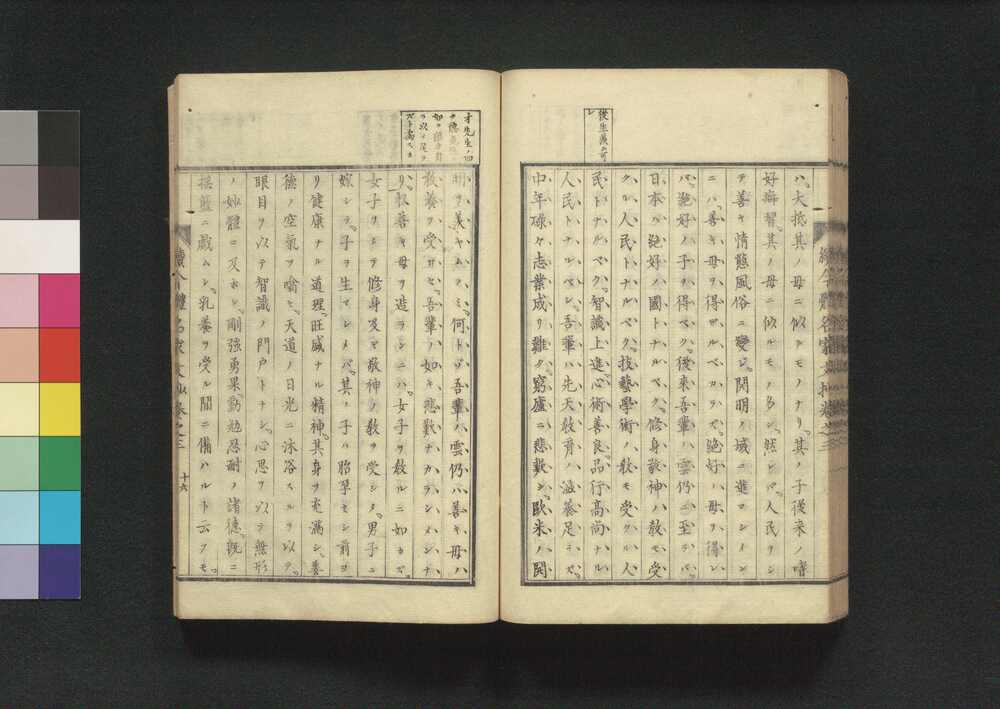 後生畏ル可
シ
ハ、大抵其ノ母ニ似タモノナリ、其ノ子後來ノ嗜
好癖習、其ノ母ニ似ルモノ多シ、然レバ人民ヲシ
テ善キ情態風俗ニ變シ、開明ノ域ニ進マシメン
ニハ、善キ母ヲ得ザルベカラズ、絶好ノ母ヲ得レ
バ、絶好ノ子ヲ得ベク、後來吾輩ノ雲仍ニ至テハ、
日本ハ絶好ノ國トナルベク、修身敬神ノ教モ受
クル人民トナルベク、技藝學術ノ教モ受クル人
民トナルベク、智識上進、心術善良、品行高尚ナル
人民トナルベシ、吾輩ハ先天教育ノ滋養足ラズ、
中年碌々志業成リ難ク、窮廬ニ悲歎シ、歐米ノ開
才先生ノ四
明ヲ羨ヤムノミ、何トゾ吾輩ノ雲仍ハ善キ母ノ
教養ヲ受ケセ、吾輩ノ如キ悲歎ナカラシメンナ
リ、扨善キ母ヲ造ランニハ、女子ヲ教ルニ如カズ、
女子ヲシテ修身及ヒ敬神ノ教ヲ受シメ、男子ニ
嫁シテ、子ヲ生マシメバ、其ノ子ハ胎孕セシ前ヨ
リ健康ナル道理、旺盛ナル精神、其身ヲ充滿シ、善
德ノ空氣ヲ噏ヒ、天道ノ日光ニ沐浴スルヲ以テ、
眼目ヲ以テ智識ノ門戶トナシ、心思ヲ以テ無形
ノ妙體ニ及ホシ、剛強勇果、勤勉忍耐ノ諸德、既ニ
搖籃ニ戲ムレ、乳養ヲ受ル間ニ備ハルト云フモ、
續今體名家文抄卷之三
十六